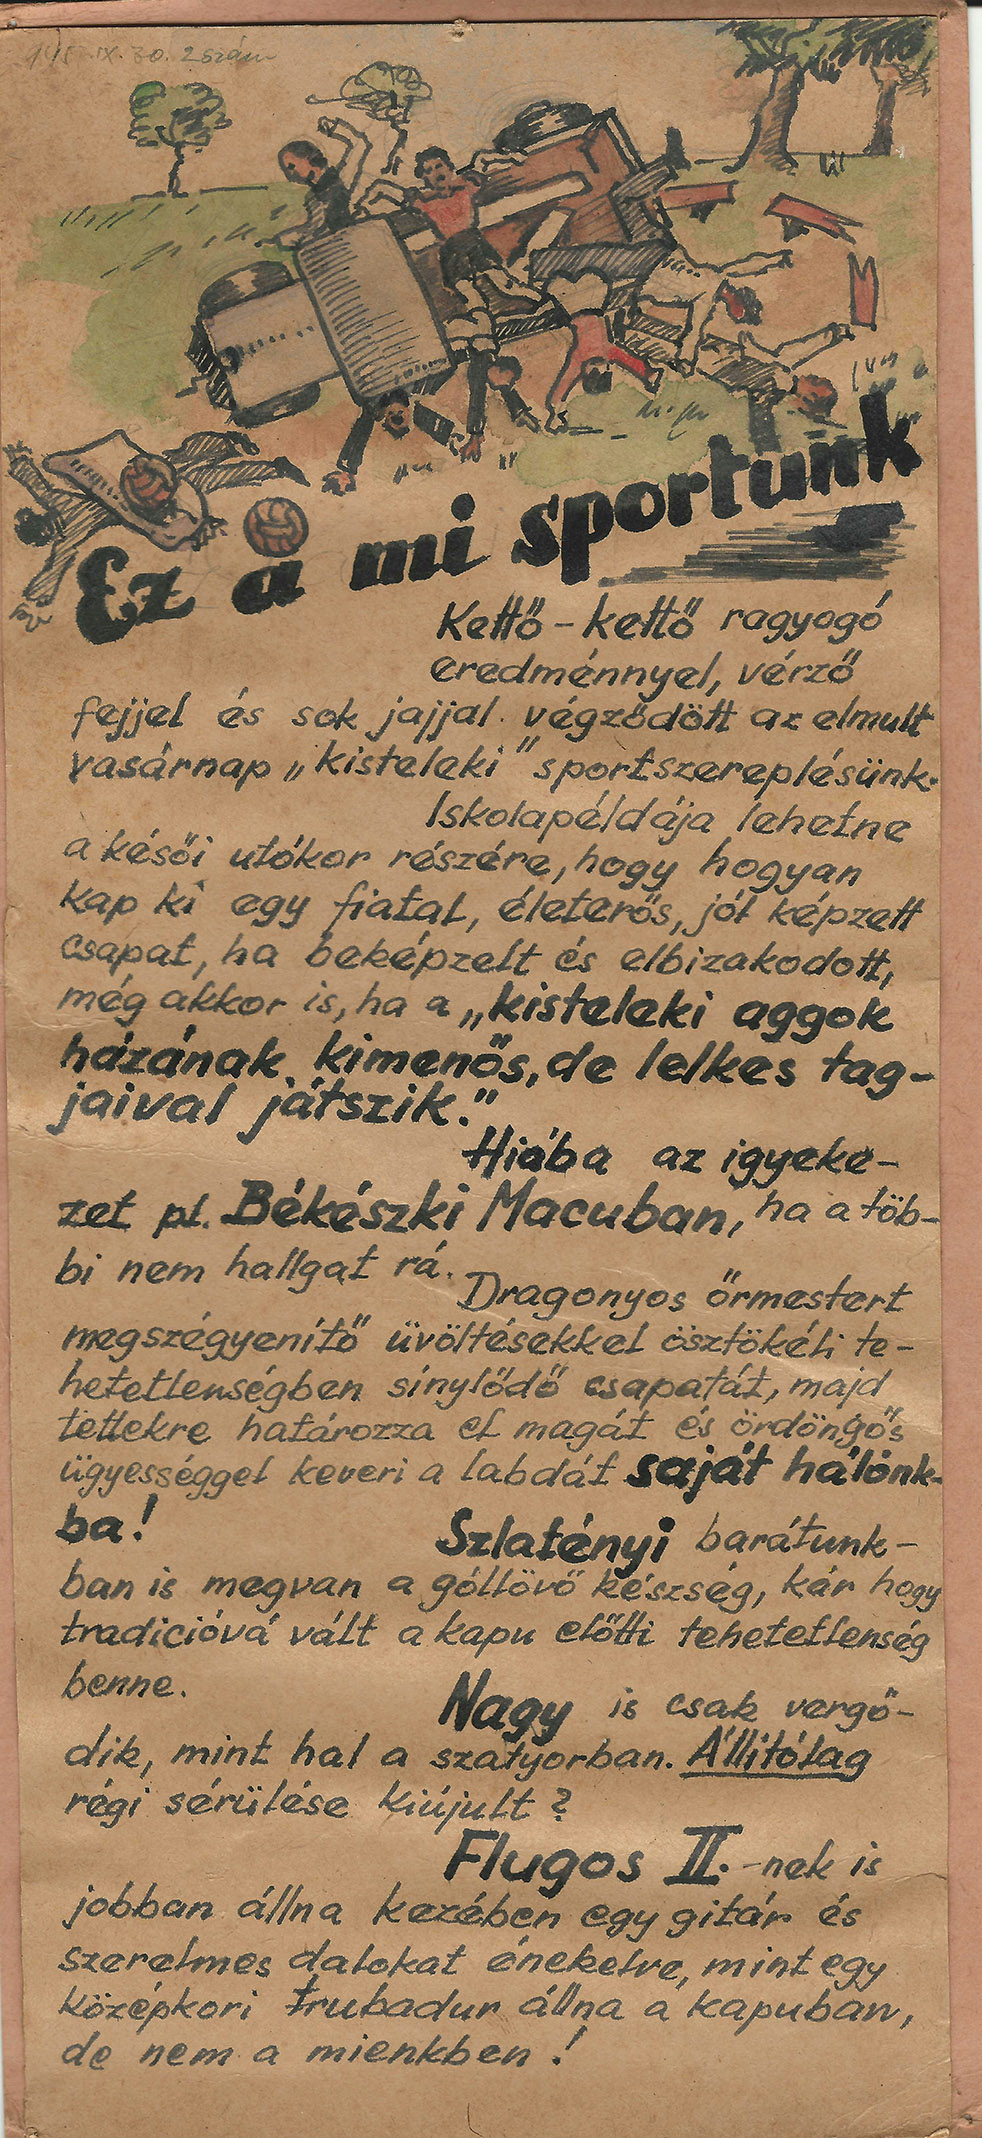 IX. 30. 2 szám
Ez a mi sportunk
Kettő - kettő ragyogó
eredménnyel, vérző
fejjel és sok jajjal végződött az elmult
vasárnap „kisteleki" sportszereplésünk.
Iskolapéldája lehetne
a késői utókor részére, hogy hogyan
kap ki egy fiatal, életerős, jól képzett
csapat, ha beképzelt és elbizakodott,
még akkor is, ha a „kisteleki aggok
házának kimenős, de lelkes tag-
jaival játszik."
Hiába az igyeke-
zet pl. Békészki Macuban, ha a töb-
bi nem hallgat rá.
Dragonyos őrmestert
megszégyenítő üvöltésekkel ösztökéli te-
hetetlenségben sínylődő csapatát, majd
tettekre határozza el magát és ördöngős
ügyességgel keveri a labdát saját hálónk-
ba!
Szlatényi barátunk-
ban is megvan a góllövő készség, kár hogy
tradicióvá vált a kapu előtti tehetetlenség
benne.
Nagy is csak vergő-
dik, mint hal a szatyorban. Állitólag
régi sérülése kiújult?
Flugos II. -nek is
jobban állna kezében egy gitár és
szerelmes dalokat énekelve, mint egy
középkori trubadur állna a kapuban,
de nem a mienkben!